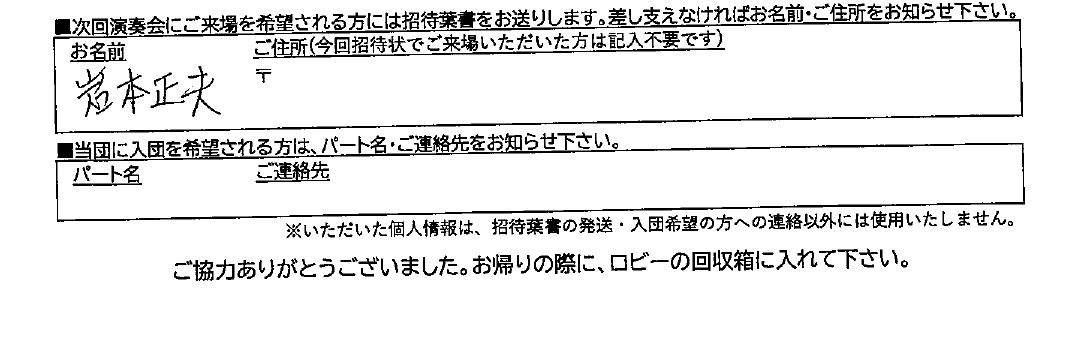 ■次回演奏会にご来場を希望される方には招待葉書をお送りします。差し支えなければお名前・ご住所をお知らせ下さい。
お名前 ご住所(今回招待状でご来場いただいた方は記入不要です)
岩本正夫 〒
■当団に入団を希望される方は、パート名・ご連絡先をお知らせ下さい。
パート名 ご連絡先
※いただいた個人情報は、招待葉書の発送・入団希望の方への連絡以外には使用いたしません。
ご協力ありがとうございました。お帰りの際に、ロビーの回収箱に入れて下さい。